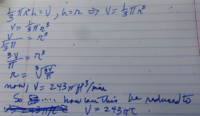 1/3 πr²h = V, h = r ⇒ V = 1/3 πr³
V = 1/3 πr³
V / 1/3 π = r³
3V/π = r³
r = ∛(3V/π)
now, V = 243πft³/min
So how can this be reduced to
V = 243π